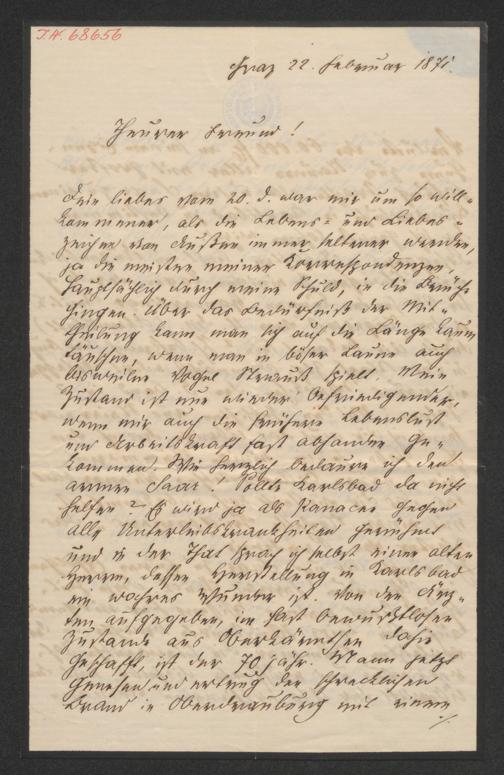 I.N. 68656
Graz 22. Februar 1871.
Theurer Freund!
Dein liebes vom 20. d. war mir um so will-
kommener, als die Lebens- und Liebes-
zeichen von Außen immer seltener werden,
ja die meisten meiner Korrespondenzen
hauptsächlich durch meine Schuld, in die Brüche
gingen. Über das Bedürfniß der Mit-
theilung kann man sich auf die Länge kaum
täuschen, wenn man in böser Laune auch
bisweilen Vogel Strauß spielt. Mein
Zustand ist nun wieder befriedigender,
wenn mir auch die frühere Lebenslust
und Arbeitskraft fast abhanden ge-
kommen. Wie herzlich bedaure ich den
armen Saar! Sollte Karlsbad da nicht
helfen? Es wird ja als Panacee gegen
alle Unterleibskrankheiten gerühmt
und in der That sprach ich selbst einen alten
Herrn, dessen Herstellung in Karlsbad
ein wahres Wunder ist. Von den Ärz-
ten aufgegeben, im fast bewußtlosen
Zustande aus Oberkärnthen dahin
geschafft, ist der 70 jähr. Mann jetzt
genesen und ertrug den schrecklichen
Brand in Oberdrauburg mit einem